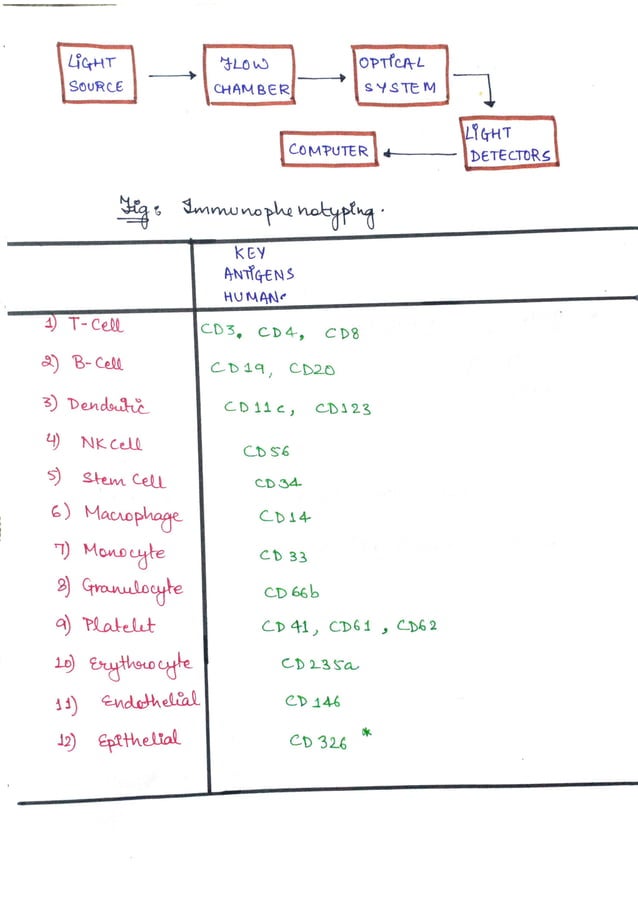 LIGHT SOURCE
FLOW CHAMBER
OPTICAL SYSTEM
LIGHT DETECTORS
COMPUTER
Fig: Immunophenotyping.
KEY
ANTIGENS
HUMAN.
1) T-Cell CD3, CD4, CD8
2) B-Cell CD19, CD20
3) Dendritic CD11c, CD123
4) NK Cell CD56
5) Stem Cell CD34
6) Macrophage CD14
7) Monocyte CD33
8) Granulocyte CD66b
9) Platelet CD41, CD61, CD62
10) Erythrocyte CD235a
11) Endothelial CD146
12) Epithelial CD326 *